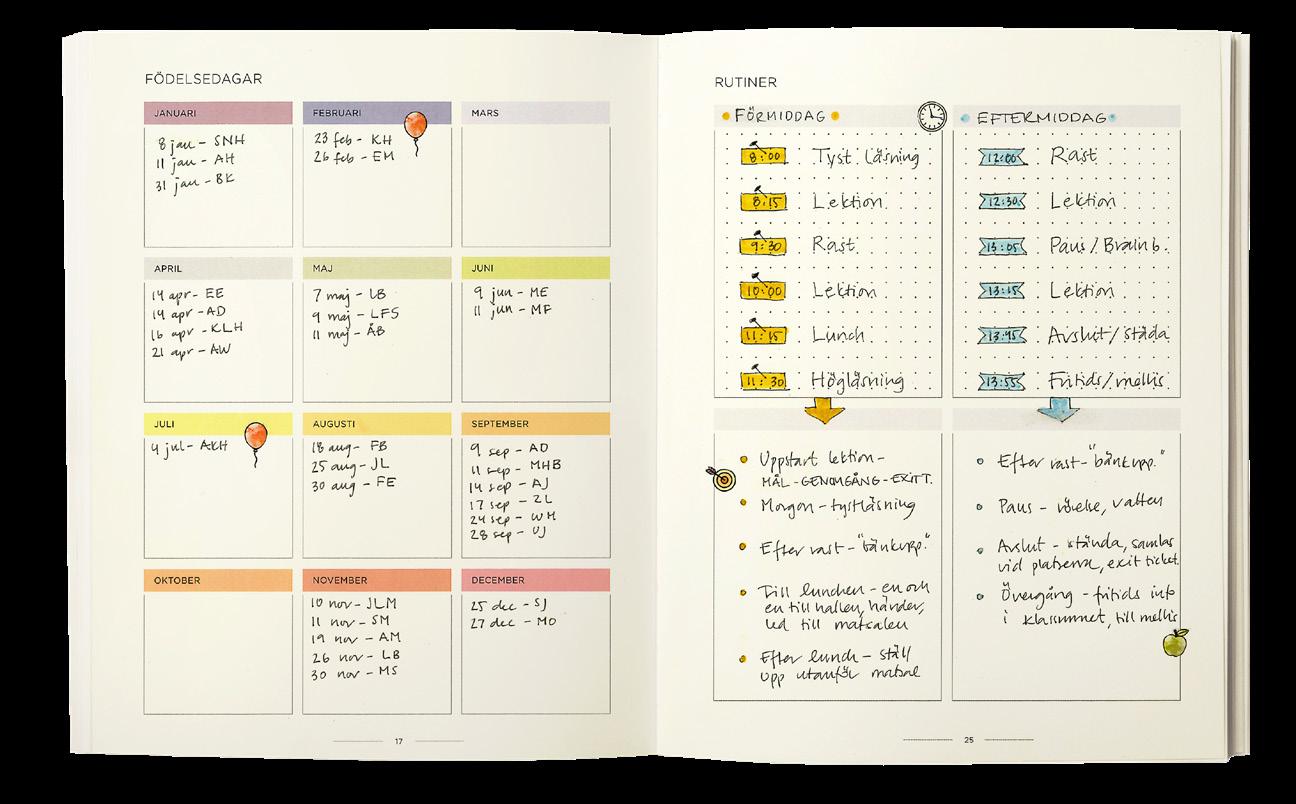 FÖDELSEDAGAR
JANUARI
8 jan - SNH
11 jan - AH
31 jan - BK
FEBRUARI
23 feb - KH
26 feb - EM
MARS
APRIL
14 apr - EE
14 apr - AD
16 apr - KLH
21 apr - AW
MAJ
7 maj - LB
9 maj - LFS
11 maj - ÅB
JUNI
9 jun - ME
11 jun - MF
JULI
4 jul - AKH
AUGUSTI
18 aug - FB
25 aug - JL
30 aug - FE
SEPTEMBER
9 sep - AD
11 sep - MHB
14 sep - AJ
17 sep - ZL
24 sep - WH
28 sep - VJ
OKTOBER
NOVEMBER
10 nov - JLM
11 nov - SM
19 nov - AM
26 nov - LB
30 nov - MS
DECEMBER
25 dec - SJ
27 dec - MO
17
RUTINER
FÖRMIDDAG
8:00 Tyst läsning
8:15 Lektion
9:30 Rast
10:00 Lektion
11:15 Lunch
11:30 Högläsning
EFTERMIDDAG
12:00 Rast
12:30 Lektion
13:05 Paus / Brain b.
13:15 Lektion
13:45 Avslut / städa
13:55 Fritids / mellis
Uppstart lektion -
MÅL - GENOMGÅNG - EXIT T.
Morgon - tystläsning
Efter rast - "bänkupp."
Till lunchen - en och
en till hallen, händer,
led till matsalen
Efter lunch - ställ
upp utanför matsal
Efter rast - "bänkupp."
Paus - rörelse, vatten
Avslut - stända, samlas
vid platserna, exit ticket.
Övergång - fritids in to
i klassrummet, till mellis
25